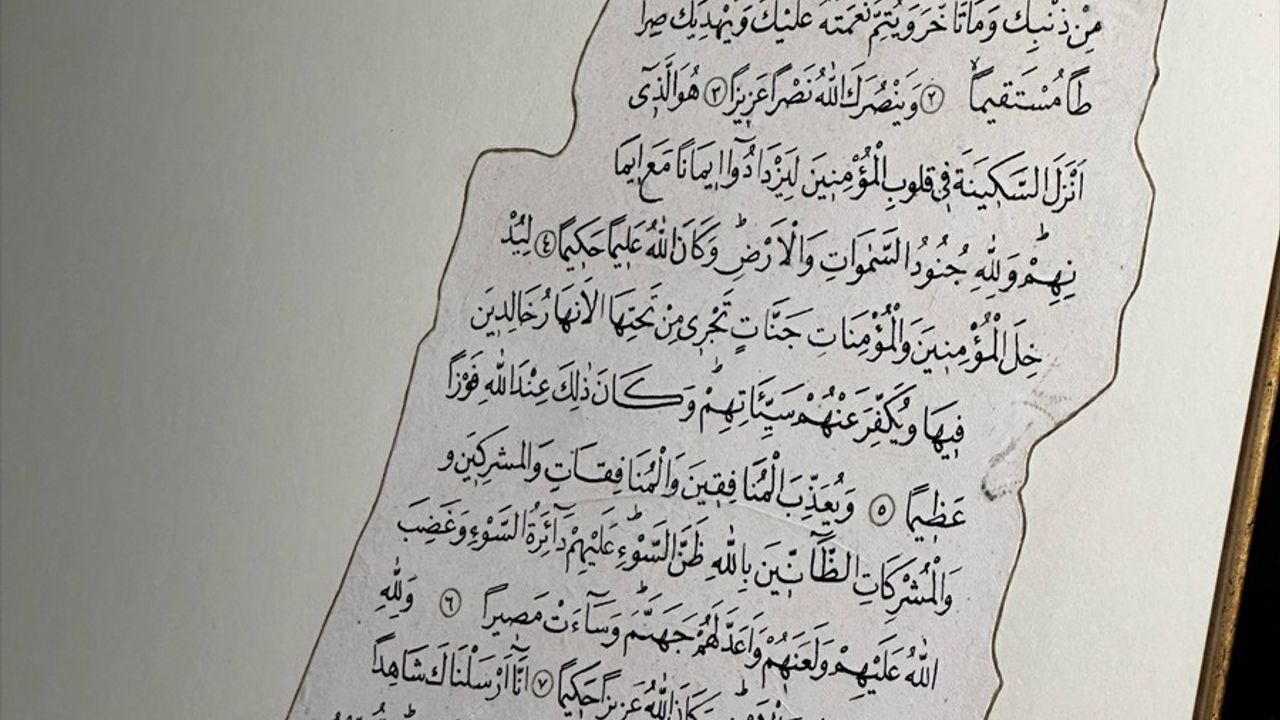 مِنْ ذَنْبِكَ وَمَا تَأَخَّرَ وَيُتِمَّ نِعْمَتَهُ عَلَيْكَ وَيَهْدِيَكَ صِرَا
طًا مُسْتَقِيمًا ۙ ٢ وَيَنْصُرَكَ اللّٰهُ نَصْرًا عَزِيزًا ٣ هُوَ الَّذِٓى
اَنْزَلَ السَّكِينَةَ فِى قُلُوبِ الْمُؤْمِنِينَ لِيَزْدَادُٓوا اِيمَانًا مَعَ اِيمَا
نِهِمْ ۜ وَلِلّٰهِ جُنُودُ السَّمٰوَاتِ وَالْاَرْضِ ۜ وَكَانَ اللّٰهُ عَلِيمًا حَكِيمًا ٤ لِيُدْ
خِلَ الْمُؤْمِنِينَ وَالْمُؤْمِنَاتِ جَنَّاتٍ تَجْرِى مِنْ تَحْتِهَا الْاَنْهَارُ خَالِدِينَ
فِيهَا وَيُكَفِّرَ عَنْهُمْ سَيِّئَاتِهِمْ ۜ وَكَانَ ذٰلِكَ عِنْدَ اللّٰهِ فَوْزًا
عَظِيمًا ٥ وَيُعَذِّبَ الْمُنَافِقِينَ وَالْمُنَافِقَاتِ وَالْمُشْرِكِينَ و
وَالْمُشْرِكَاتِ الظَّٓانِّينَ بِاللّٰهِ ظَنَّ السَّوْءِ ۜ عَلَيْهِمْ دَٓائِرَةُ السَّوْءِ وَغَضِبَ
اللّٰهُ عَلَيْهِمْ وَلَعَنَهُمْ وَاَعَدَّ لَهُمْ جَهَنَّمَ ۜ وَسَٓاءَتْ مَصِيرًا ٦ وَلِلّٰهِ
وَكَانَ اللّٰهُ عَزِيزًا حَكِيمًا ٧ اِنَّٓا اَرْسَلْنَاكَ شَاهِدًا